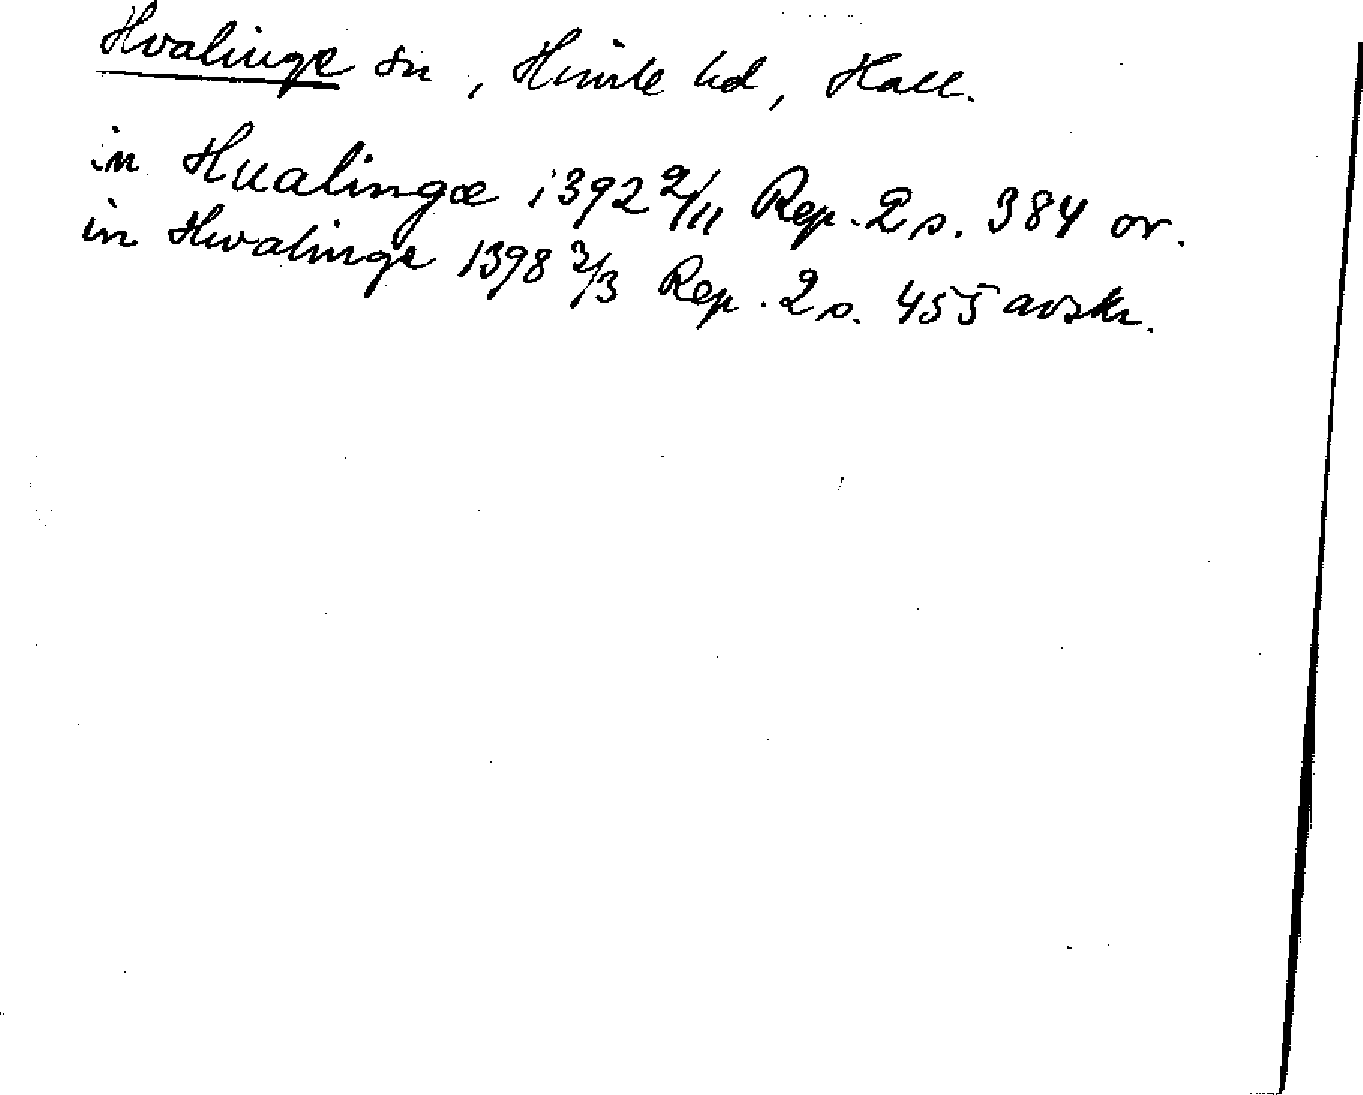 Hvalinge sn, Himle hd, Hall.
in Hualingæ 1392 9/11 Rep. 2 s. 384 or.
in Hwalinge 1398 3/3 Rep. 2 s. 455 avskr.